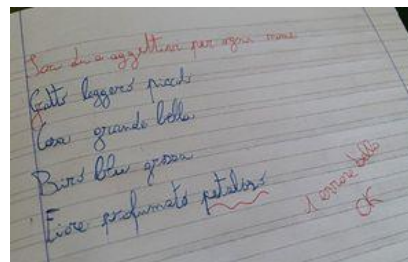 due aggettivi per ogni nome
Gatto leggero piccolo
Casa grande bella
Biro blu grossa
Fiore profumato petaloso
1 errore bello
OK